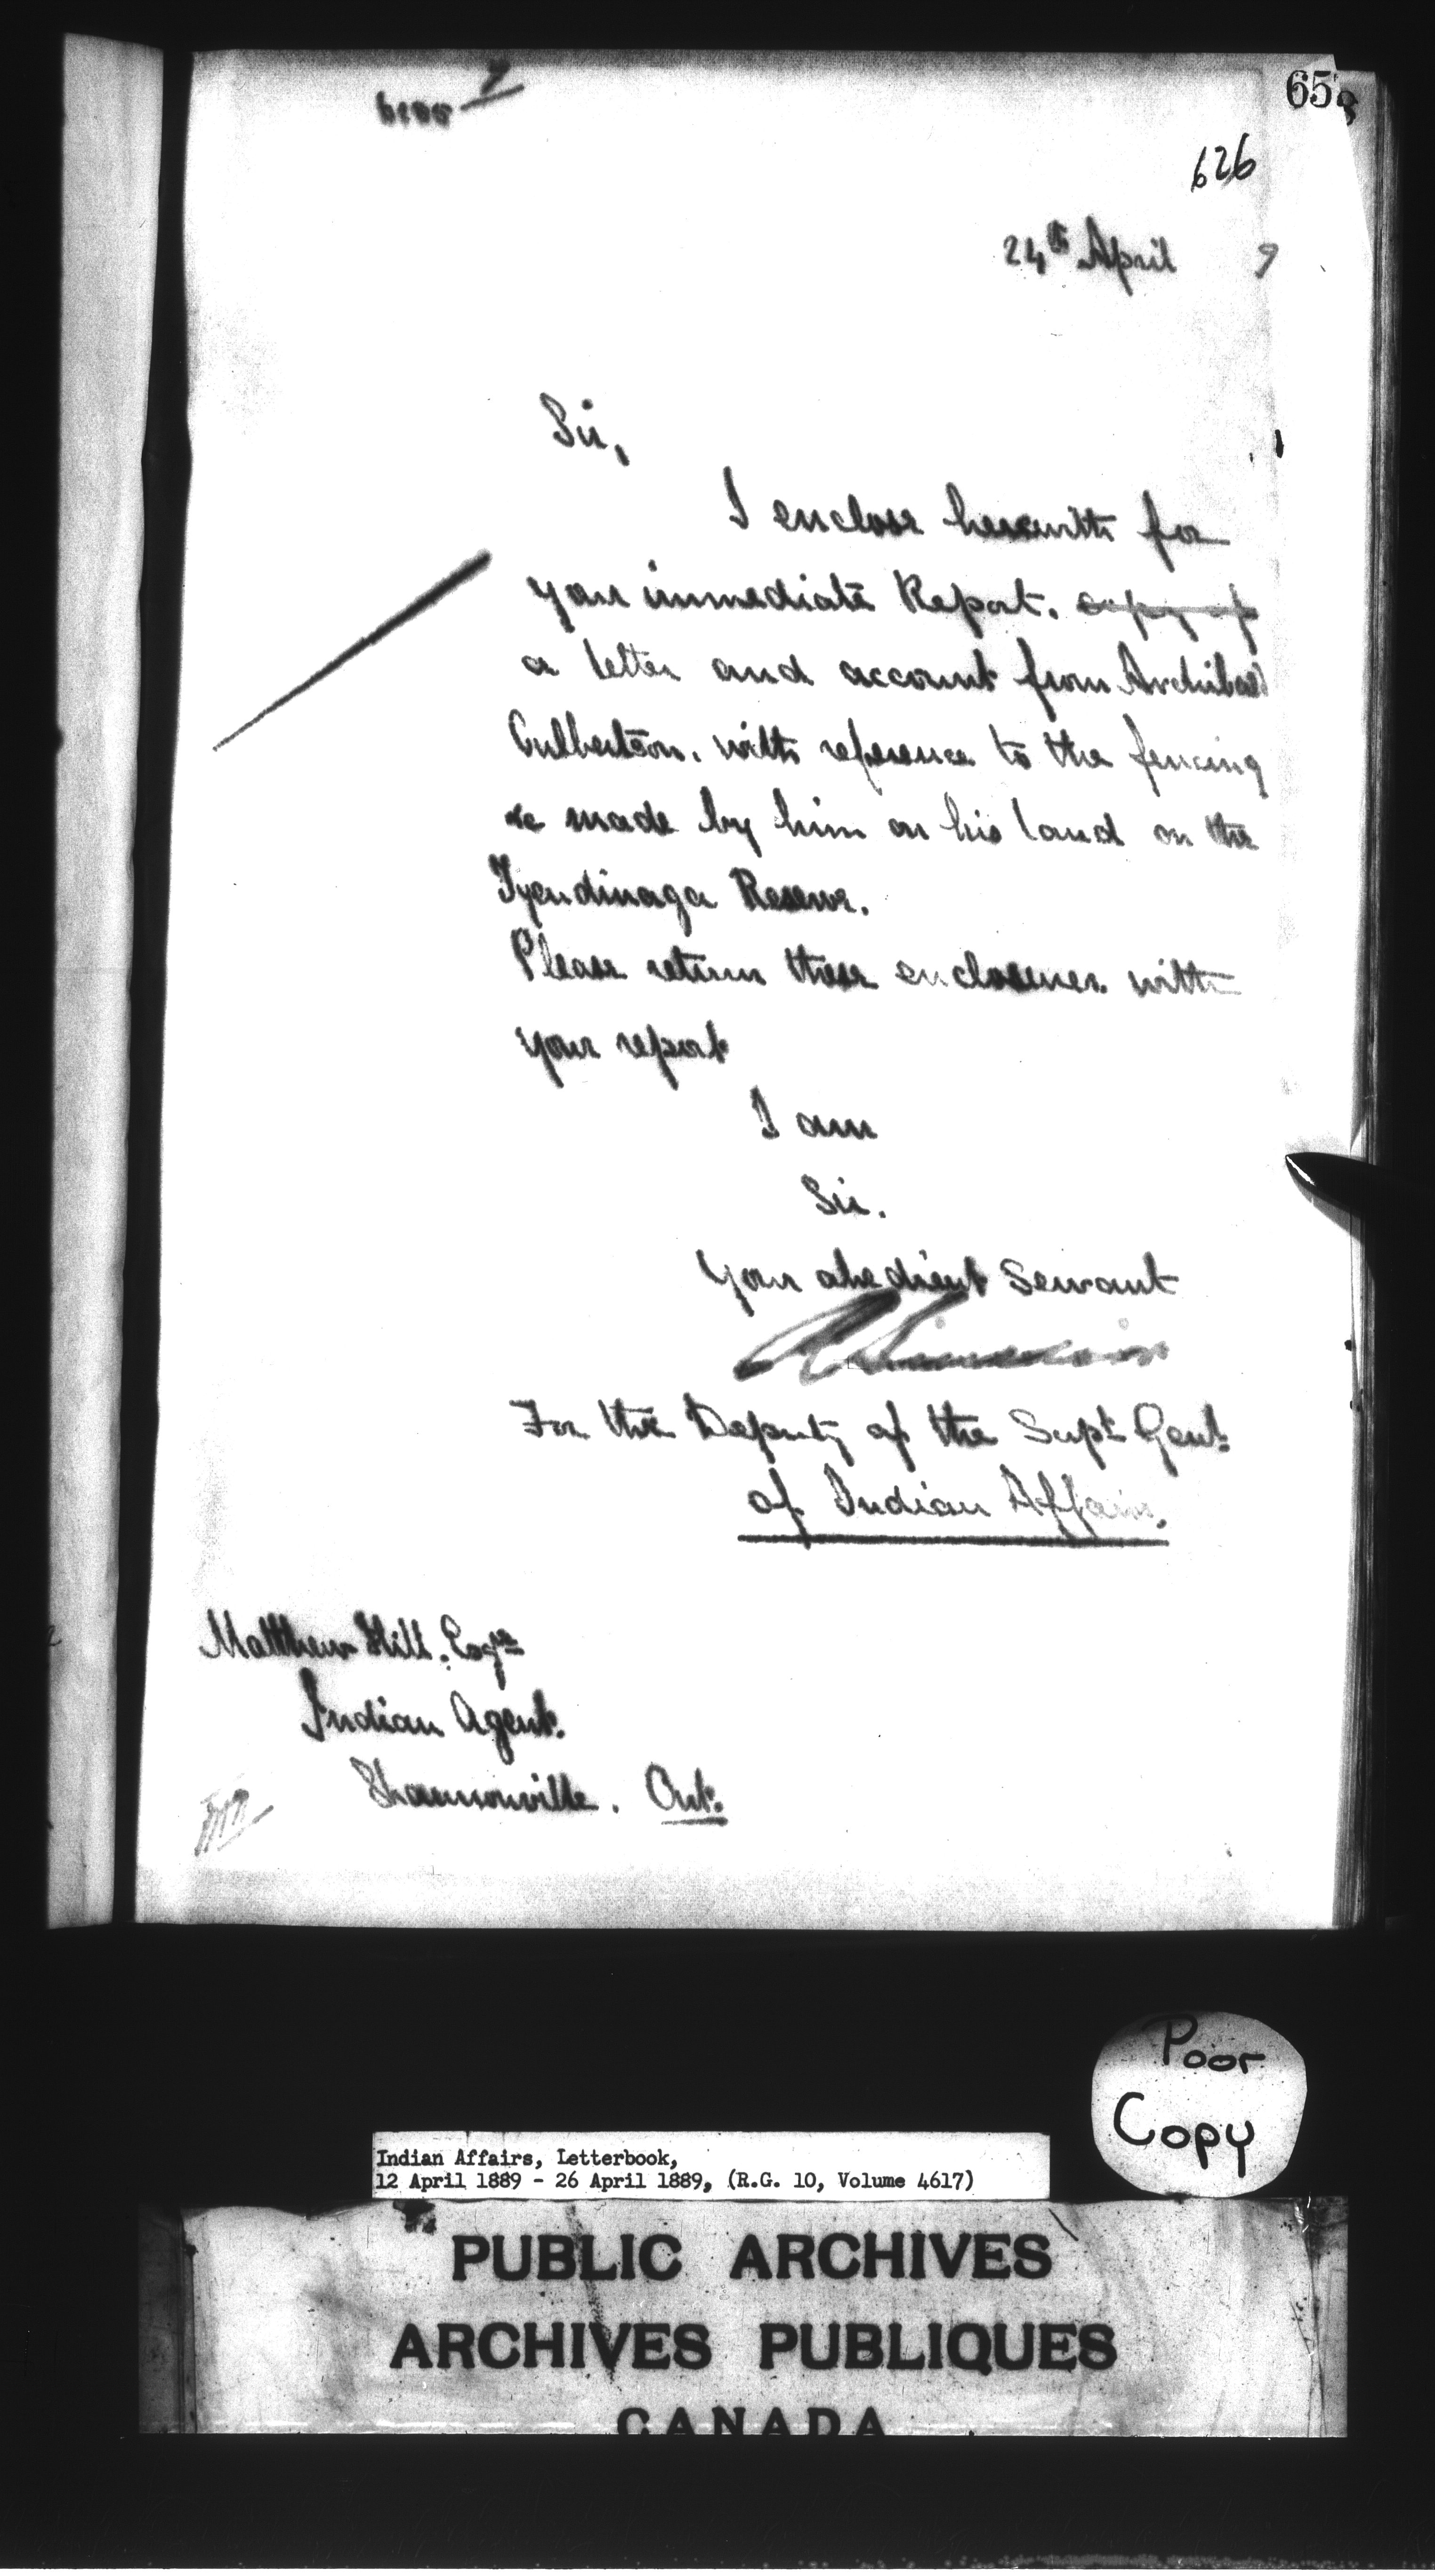 658
626
24th April 9
Sir,
I enclose herewith for
your immediate Report. copy of
a letter and account from Archibald
Culbertson. with reference to the fencing
&c made by him on his land on the
Tyendinaga Reserve.
Please return these enclosures with
your report
I am
Sir.
Your obedient Servant
For the Deputy of the Supt Genl.
of Indian Affairs.
Matthew Hill. Esqre
Indian Agent.
Shannonville. Ont.
Poor
Copy
Indian Affairs, Letterbook,
12 April 1889 - 26 April 1889, (R.G. 10, Volume 4617)
PUBLIC ARCHIVES
ARCHIVES PUBLIQUES
CANADA